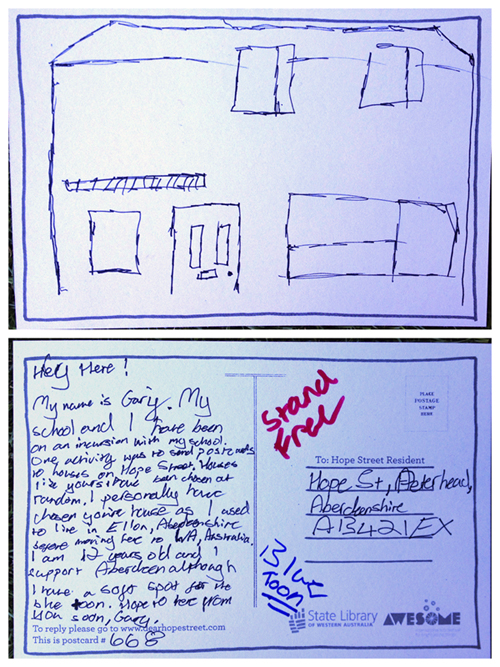 Hey Here!
My name is Gary. My
school and I have been
on an incursion with my school.
One activity was to send postcards
to houses on Hope Street. Houses
like yours have been chosen at
random. I personally have
chosen youre house as I used
to live in Ellon, Aberdeenshire
before moving her to WA, Australia.
I am 12 years old and I
support Aberdeen although
I have a soft spot for the
blue toon. Hope to her from
you soon, Gary.
To reply please go to www.dearhopestreet.com
This is postcard # 668
Stand
Free
PLACE
POSTAGE
STAMP
HERE
To: Hope Street Resident
Hope St, Peterhead,
Aberdeenshire
AB42 1EX
Blue
Toon
State Library
OF WESTERN AUSTRALIA
AWESOME